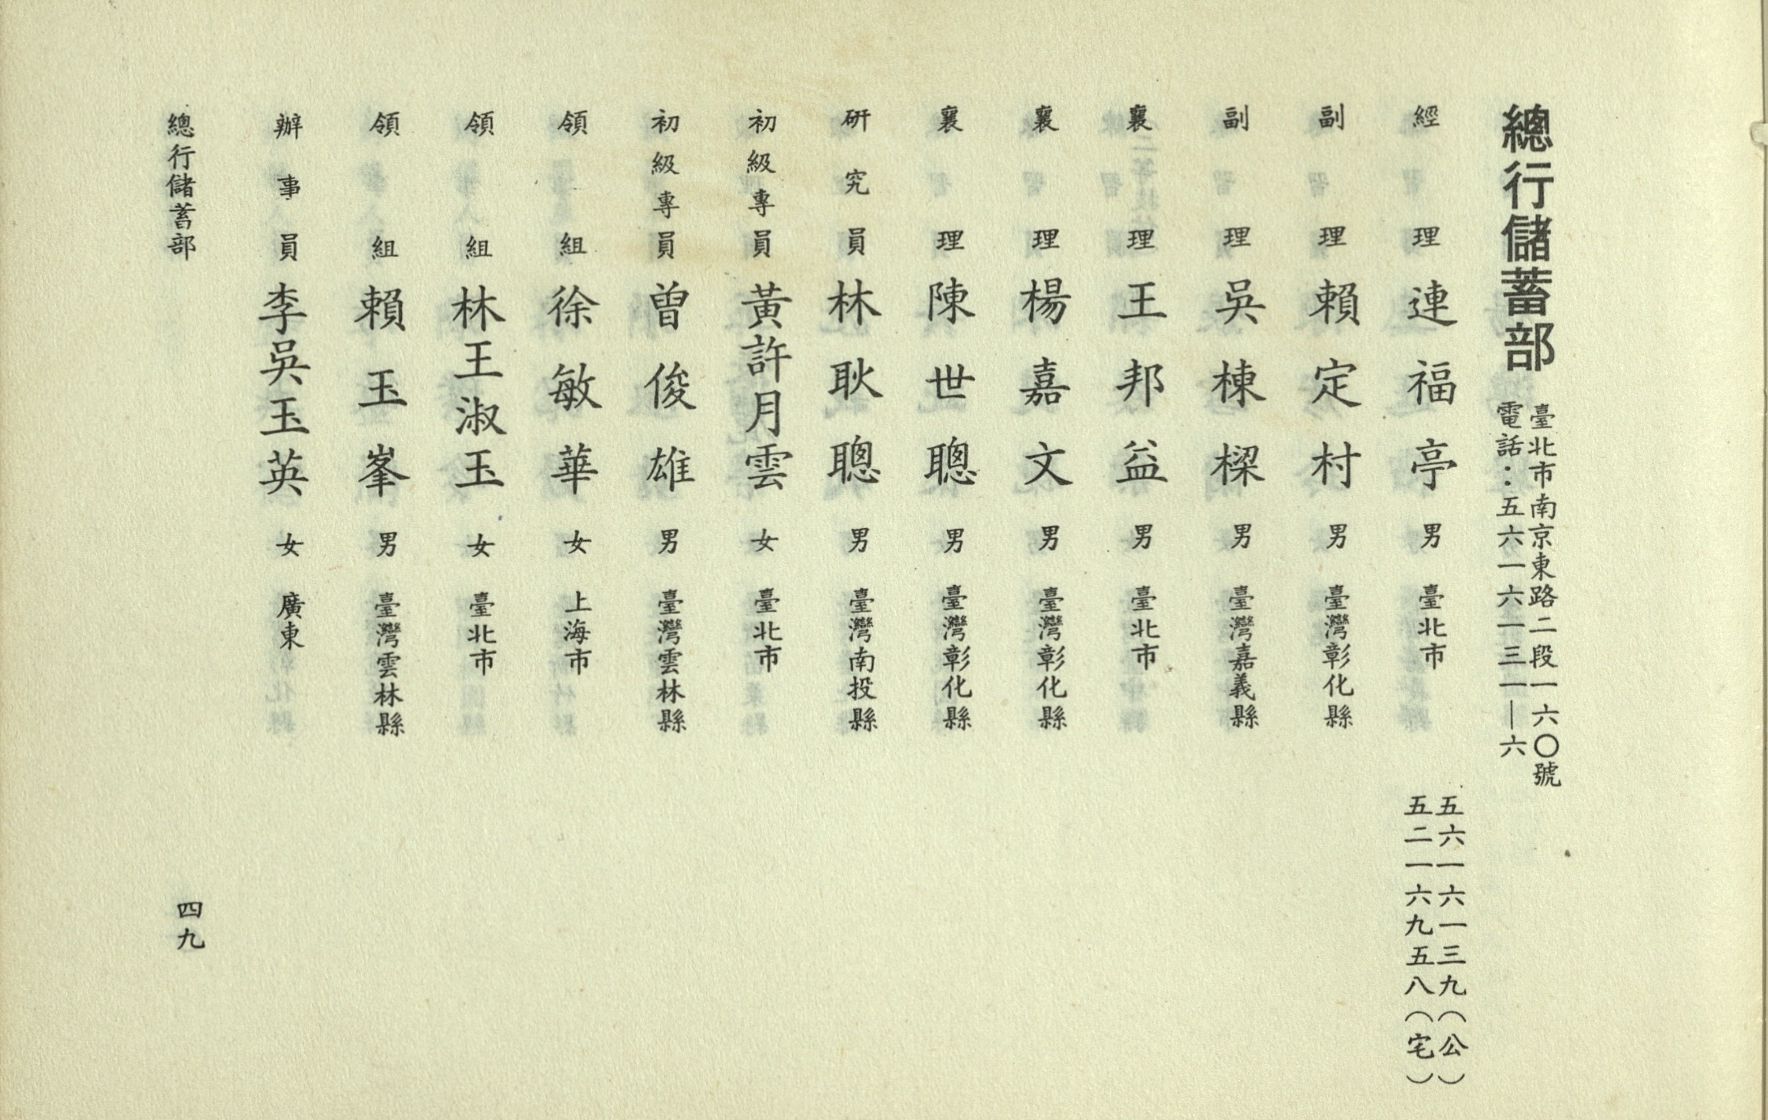 總行儲蓄部
臺北市南京東路二段一六〇號
電話：五六一六一三一—六
經理 連福亭 男 臺北市 五六一六一三九（公）
五二一六九五八（宅）
副理 賴定村 男 臺灣彰化縣
副理 吳棟樑 男 臺灣嘉義縣
襄理 王邦益 男 臺北市
襄理 楊嘉文 男 臺灣彰化縣
襄理 陳世聰 男 臺灣彰化縣
研究員 林耿聰 男 臺灣南投縣
初級專員 黃許月雲 女 臺北市
初級專員 曾俊雄 男 臺灣雲林縣
領組 徐敏華 女 上海市
領組 林王淑玉 女 臺北市
領組 賴玉峯 男 臺灣雲林縣
辦事員 李吳玉英 女 廣東
總行儲蓄部
四九